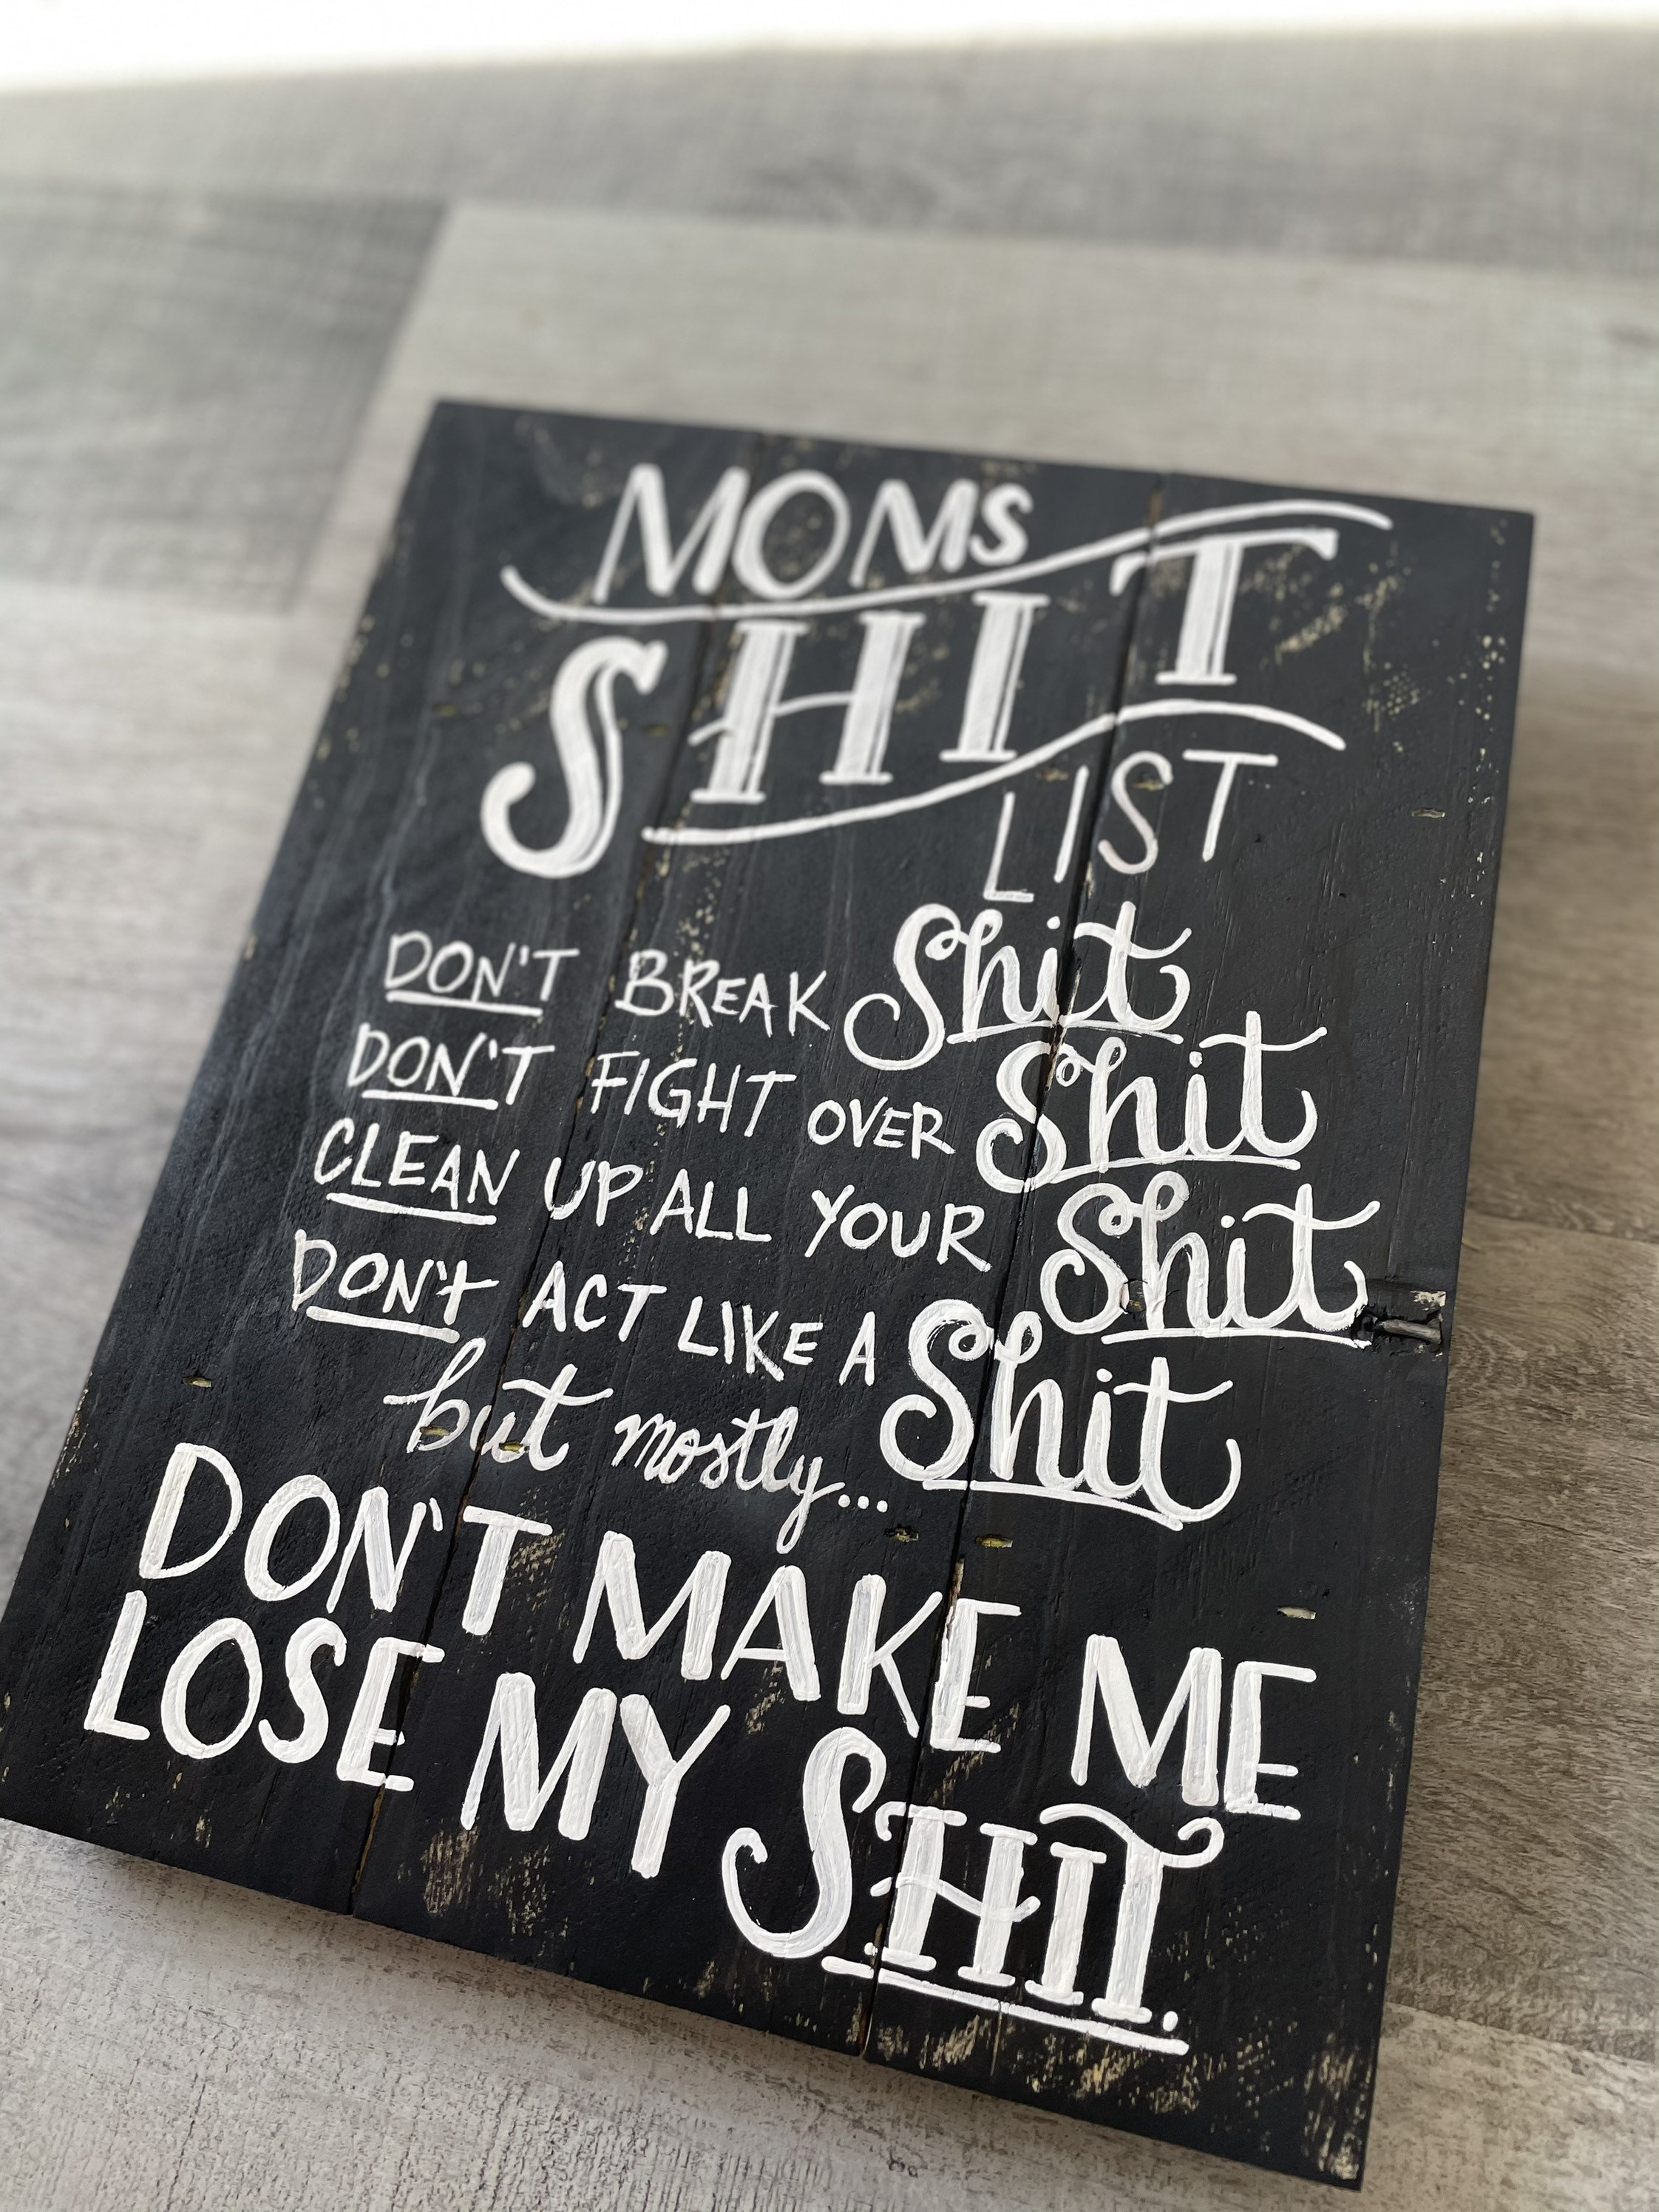 MOMS
SHIT
LIST
DON'T BREAK Shit
DON'T FIGHT OVER Shit
CLEAN UP ALL YOUR Shit
DON't ACT LIKE A Shit
but mostly...
DON'T MAKE ME
LOSE MY SHIT.